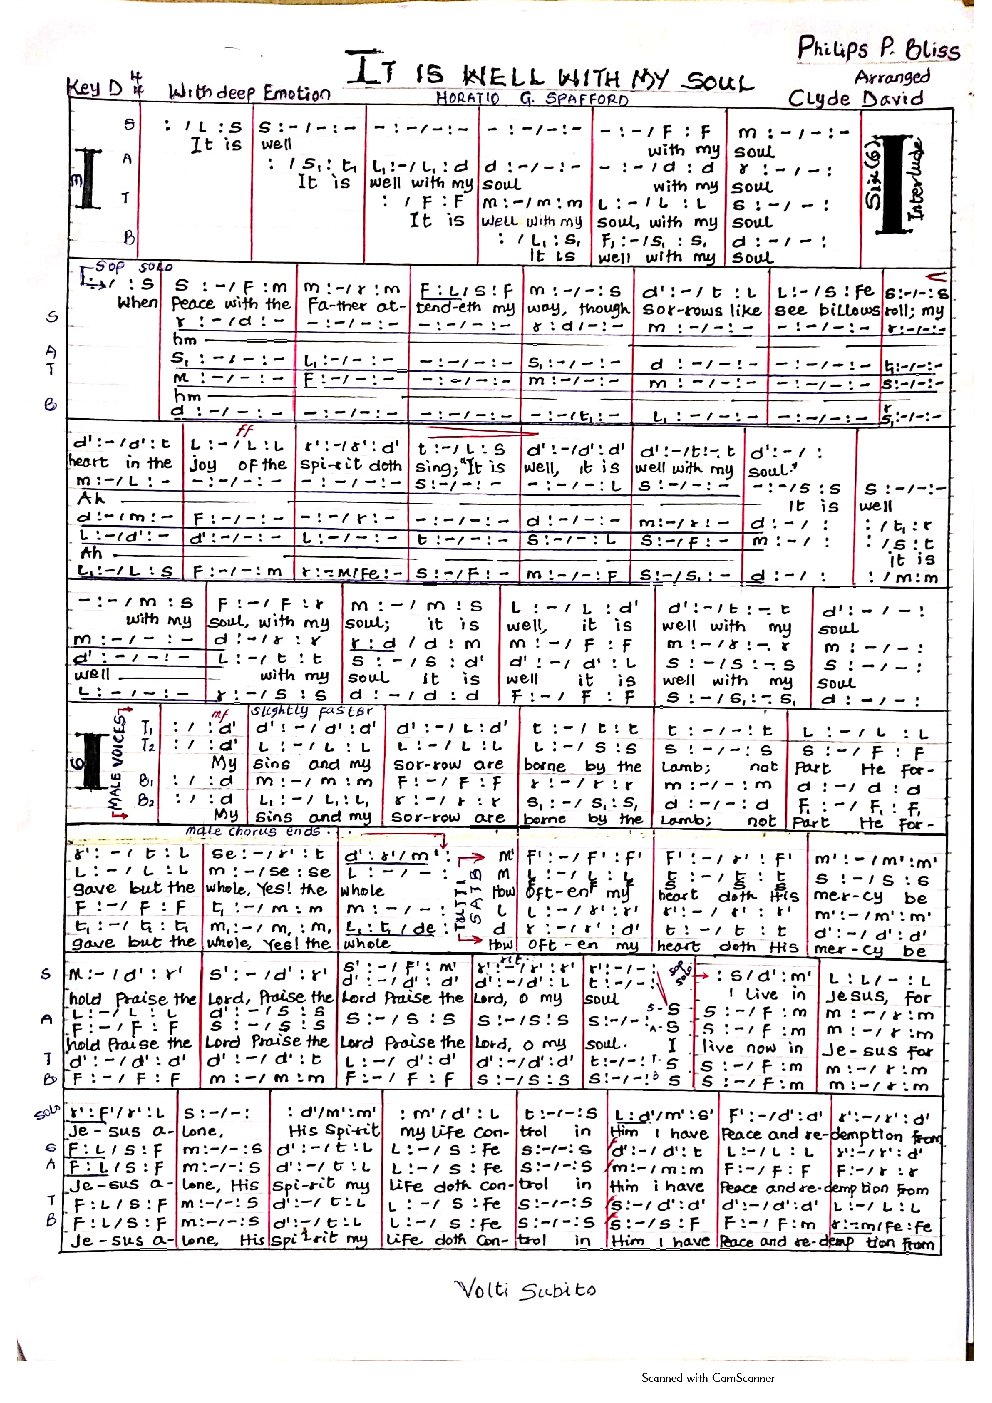 Philips P. Bliss
IT IS WELL WITH MY SOUL
Arranged
Key D
With deep Emotion
HORATIO G. SPAFFORD
Clyde David
S : / L : S S : - / - : - - : - / - : - - : - / - : - - : - / F : F m : - / - : -
It is well with my soul
A : / S₁ : t₁ L₁ : - / L₁ : d d : - / - : - - : - / d : d r : - / - :
It is well with my soul with my soul
T : / F : F m : - / m : m L : - / L : L S : - / - :
It is well with my soul, with my soul
B : / L₁ : S₁ F₁ : - / S₁ : S₁ d : - / - :
It is well with my soul
Six (6) Interlude
Sop solo
: / : S S : - / F : m m : - / r : m F : L / S : F m : - / - : S d' : - / t : L L : - / S : Fe S : - / - : S
When Peace with the Fa-ther at- tend-eth my way, though Sor-rows like see billows roll; my
S r : - / d : - - : - / - : - - : - / - : - r : d / - : - m : - / - : - - : - / - : - r : - / - : -
hm
A S₁ : - / - : - L₁ : - / - : - - : - / - : - S₁ : - / - : - d : - / - : - - : - / - : - t₁ : - / - : -
T m : - / - : - F : - / - : - - : - / - : - m : - / - : - m : - / - : - - : - / - : - S : - / - : -
hm
B d : - / - : - - : - / - : - - : - / - : - - : - / t₁ : - L₁ : - / - : - - : - / - : - S₁ : - / - : -
ff
d' : - / d' : t L : - / L : L r' : - / r' : d' t : - / L : S d' : - / d' : d' d' : - / t : - . t d' : - / :
heart in the joy of the spi-rit doth sing; "It is well, it is well with my soul."
m : - / L : - - : - / - : - - : - / - : - S : - / - : - - : - / - : L S : - / - : - - : - / S : S S : - / - : -
Ah It is well
d : - / m : - F : - / - : - - : - / r : - - : - / - : - d : - / - : - m : - / r : - d : - / : : / t₁ : r
L : - / d' : - d' : - / - : - L : - / - : - t : - / - : - S : - / - : L S : - / F : - m : - / : : / S : t
Ah it is
L₁ : - / L : S F : - / - : m r : - m / Fe : - S : - / F : - m : - / - : F S : - / S₁ : - d : - / : : / m : m
- : - / m : S F : - / F : r m : - / m : S L : - / L : d' d' : - / t : - . t d' : - / - :
with my soul, with my soul; it is well, it is well with my soul
m : - / - : - d : - / r : r r : d / d : m m : - / F : F m : - / r : - . r m : - / - :
d' : - / - : - L : - / t : t S : - / S : d' d' : - / d' : L S : - / S : - . S S : - / - :
well with my soul it is well it is well with my soul
L : - / - : - r : - / S : S d : - / d : d F : - / F : F S : - / S₁ : - . S₁ d : - / - :
MALE VOICES
mf
slightly faster
T₁ : / : d' d' : - / d' : d' d' : - / L : d' t : - / t : t t : - / - : t L : - / L : L
T₂ : / : d' L : - / L : L L : - / L : L L : - / S : S S : - / - : S S : - / F : F
My sins and my sor-row are borne by the Lamb; not Part He for-
B₁ : / : d m : - / m : m F : - / F : F r : - / r : r m : - / - : m d : - / d : d
B₂ : / : d L₁ : - / L₁ : L₁ r : - / r : r S₁ : - / S₁ : S₁ d : - / - : d F₁ : - / F₁ : F₁
My sins and my sor-row are borne by the Lamb; not Part He for-
male chorus ends.
r' : - / t : L Se : - / r' : t d' : r' / m' : m' F' : - / F' : F' F' : - / r' : F' m' : - / m' : m'
L : - / L : L m : - / se : se L : - / - : m L : - / L : L t : - / t : t S : - / S : S
gave but the whole, Yes! the whole How oft-en my heart doth His mer-cy be
TUTTI SATB
F : - / F : F t₁ : - / m : m m : - / - : L L : - / r' : r' r' : - / r' : r' m' : - / m' : m'
t₁ : - / t₁ : t₁ m₁ : - / m₁ : m₁ L₁ : t₁ / de : d r : - / r' : d' t : - / t : t d' : - / d' : d'
gave but the whole, Yes! the whole How oft-en my heart doth His mer-cy be
rit.
S m : - / d' : r' S' : - / d' : r' S' : - / F' : m' r' : - / r' : d' r' : - / - : : S / d' : m' L : L / - : L
solo
hold Praise the Lord, Praise the Lord Praise the Lord, O my soul I live in Jesus, for
A L : - / L : L d' : - / S : S d' : - / d' : d' d' : - / d' : L t : - / - : S S : - / F : m m : - / r : m
F : - / F : F S : - / S : S S : - / S : S S : - / S : S S : - / - : S S : - / F : m m : - / r : m
hold Praise the Lord Praise the Lord Praise the Lord, O my soul. I live now in Je-sus for
T d' : - / d' : d' d' : - / d' : t L : - / d' : d' d' : - / d' : d' t : - / - : S S : - / F : m m : - / r : m
B F : - / F : F m : - / m : m F : - / F : F S : - / S : S S : - / - : S S : - / F : m m : - / r : m
Solo r' : F' / r' : L S : - / - : : d' / m' : m' : m' / d' : L t : - / - : S L : d' / m' : S' F' : - / d' : d' r' : - / r' : d'
Je-sus a- lone, His Spi-rit my Life Con- trol in Him I have Peace and re-demption from
S F : L / S : F m : - / - : S d' : - / t : L L : - / S : Fe S : - / - : S d' : - / d' : t L : - / L : L r' : - / r' : d'
A F : L / S : F m : - / - : S d' : - / t : L L : - / S : Fe S : - / - : S m : - / m : m F : - / F : F F : - / r : r
Je-sus a- lone, His spi-rit my Life doth con- trol in Him i have Peace and re-demption from
T F : L / S : F m : - / - : S d' : - / t : L L : - / S : Fe S : - / - : S S : - / d' : d' d' : - / d' : d' L : - / L : L
B F : L / S : F m : - / - : S d' : - / t : L L : - / S : Fe S : - / - : S S : - / S : F F : - / F : m r : - m / Fe : Fe
Je-sus a- lone, His spi-rit my Life doth Con- trol in Him I have Peace and re-demp tion from
Volti Subito
Scanned with CamScanner